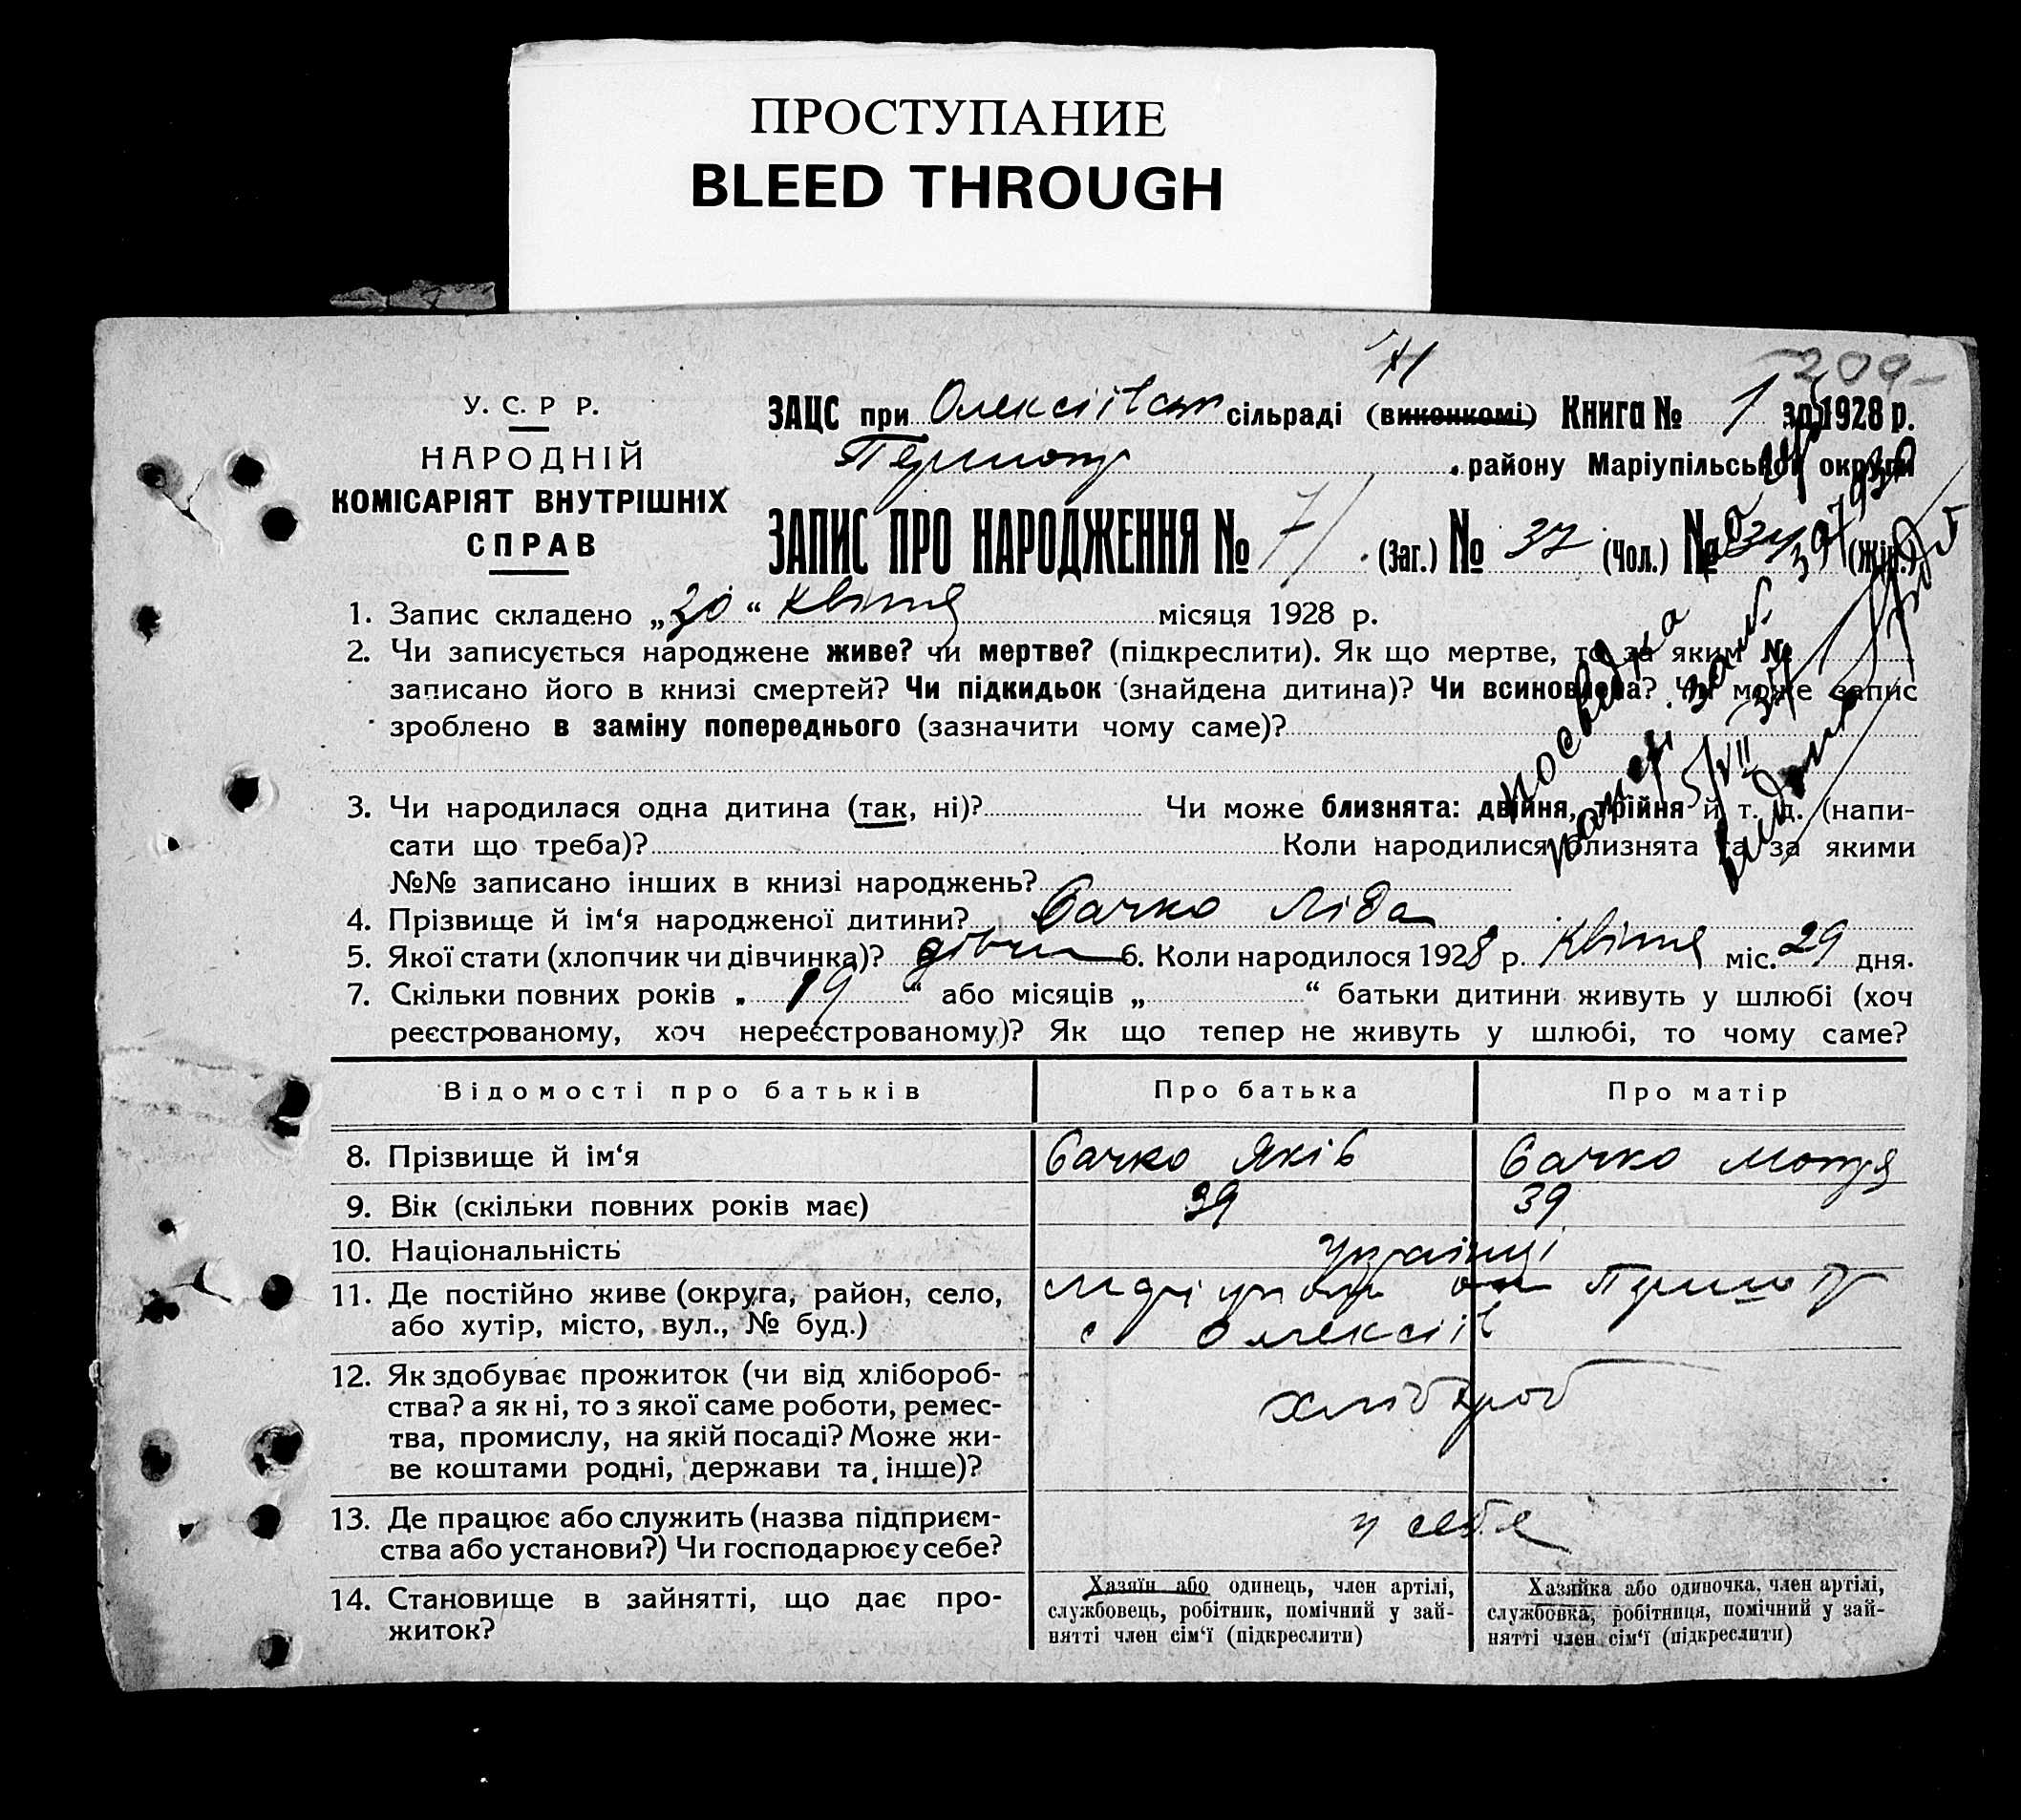 ПРОСТУПАНИЕ
BLEED THROUGH
71
209
У. С. Р Р.
НАРОДНІЙ
КОМІСАРІЯТ ВНУТРІШНІХ
СПРАВ
ЗАЦС при Олексіївськ сільраді (виконкомі) Книга № 1 за 1928 р.
району Маріупільської округи
ЗАПИС ПРО НАРОДЖЕННЯ № 71 (Заг.) № 37 (Чол.) № 34 (Жін.)
1. Запис складено „30“ квітня місяця 1928 р.
2. Чи записується народжене живе? чи мертве? (підкреслити). Як що мертве, то за яким №
записано його в книзі смертей? Чи підкидьок (знайдена дитина)? Чи всиновлена? Чи може запис
зроблено в заміну попереднього (зазначити чому саме)?
3. Чи народилася одна дитина (так, ні)? Чи може близнята: двійня, трійня й т. д. (напи-
сати що треба)? Коли народилися близнята та за якими
№№ записано інших в книзі народжень?
4. Прізвище й ім‘я народженої дитини? Бачко Ліда
5. Якої стати (хлопчик чи дівчинка)? дівчин 6. Коли народилося 1928 р. квітня міс. 29 дня.
7. Скільки повних років „19“ або місяців „ “ батьки дитини живуть у шлюбі (хоч
реєстрованому, хоч нереєстрованому)? Як що тепер не живуть у шлюбі, то чому саме?
Відомості про батьків Про батька Про матір
8. Прізвище й ім‘я Бачко Яків Бачко Мотря
9. Вік (скільки повних років має) 39 39
10. Національність Українці
11. Де постійно живе (округа, район, село,
або хутір, місто, вул., № буд.) с Олексіїв
12. Як здобуває прожиток (чи від хлібороб-
ства? а як ні, то з якої саме роботи, ремес-
тва, промислу, на якій посаді? Може жи-
ве коштами родні, держави та інше)? хлібороб
13. Де працює або служить (назва підприєм-
ства або установи?) Чи господарює у себе? у себе
14. Становище в зайнятті, що дає про-
житок?
Хазяїн або одинець, член артілі,
службовець, робітник, помічний у зай-
нятті член сім‘ї (підкреслити)
Хазяйка або одиночка, член артілі,
службовка, робітниця, помічний у зай-
нятті член сім‘ї (підкреслити)